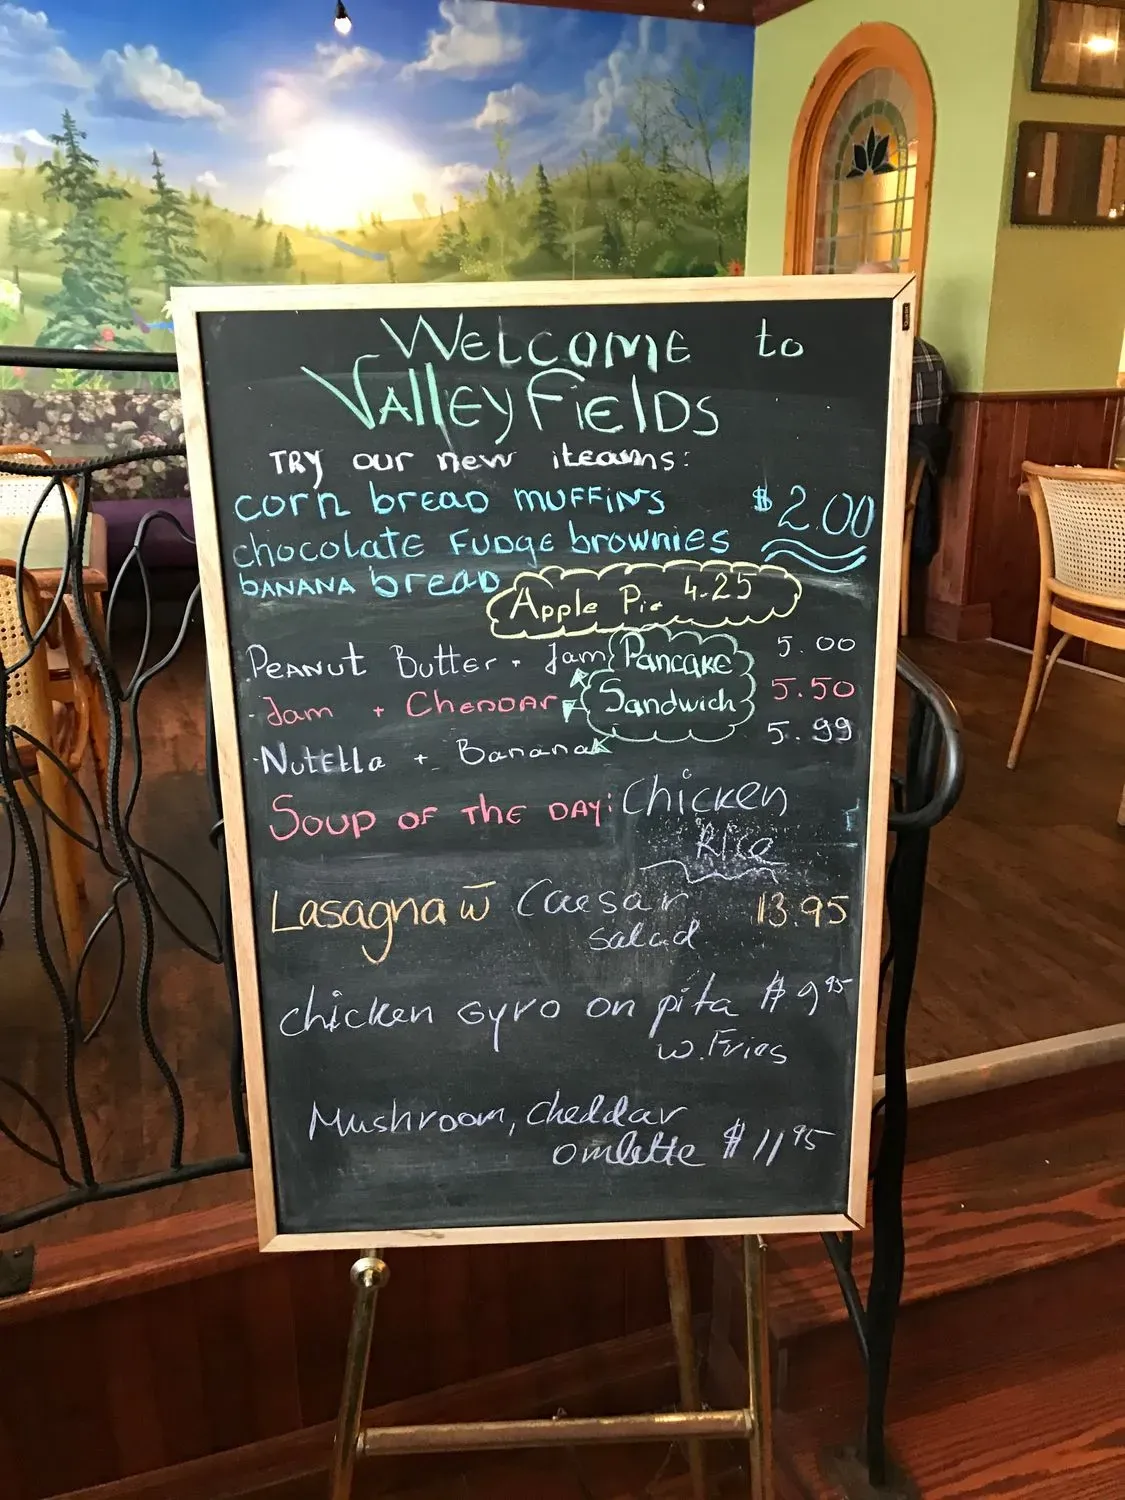 Welcome to
Valley Fields
Try our new iteams:
corn bread muffins $2.00
chocolate Fudge brownies
banana bread
Apple Pie 4.25
Peanut Butter + Jam 5.00
Pancake
Sandwich
Jam + Cheddar 5.50
Nutella + Banana 5.99
Soup of the Day: Chicken
Rice
Lasagna w̄ Caesar 13.95
salad
chicken Gyro on pita $9.95
w. Fries
Mushroom, cheddar
omlette $11.95